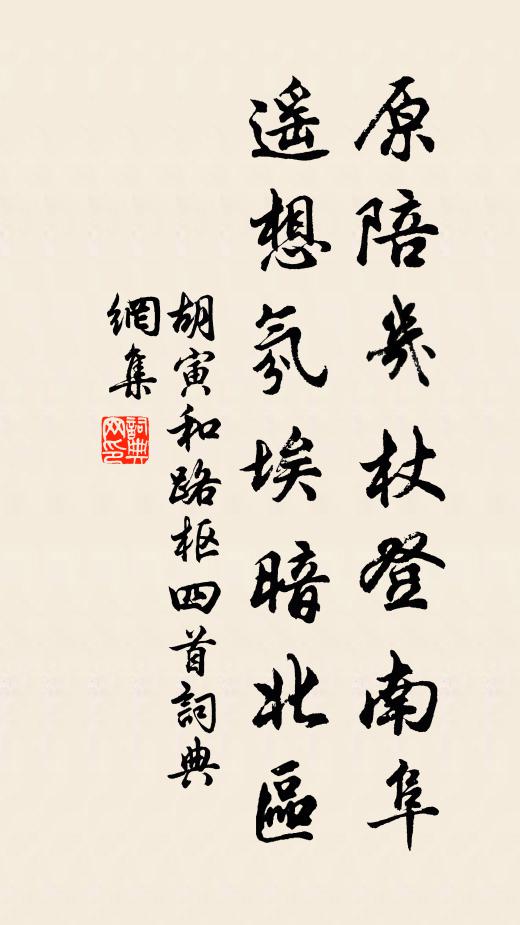 原陪幾杖登南阜
遙想氛埃暗北區
胡寅和路枢四首詞典
網集
詞典
网印